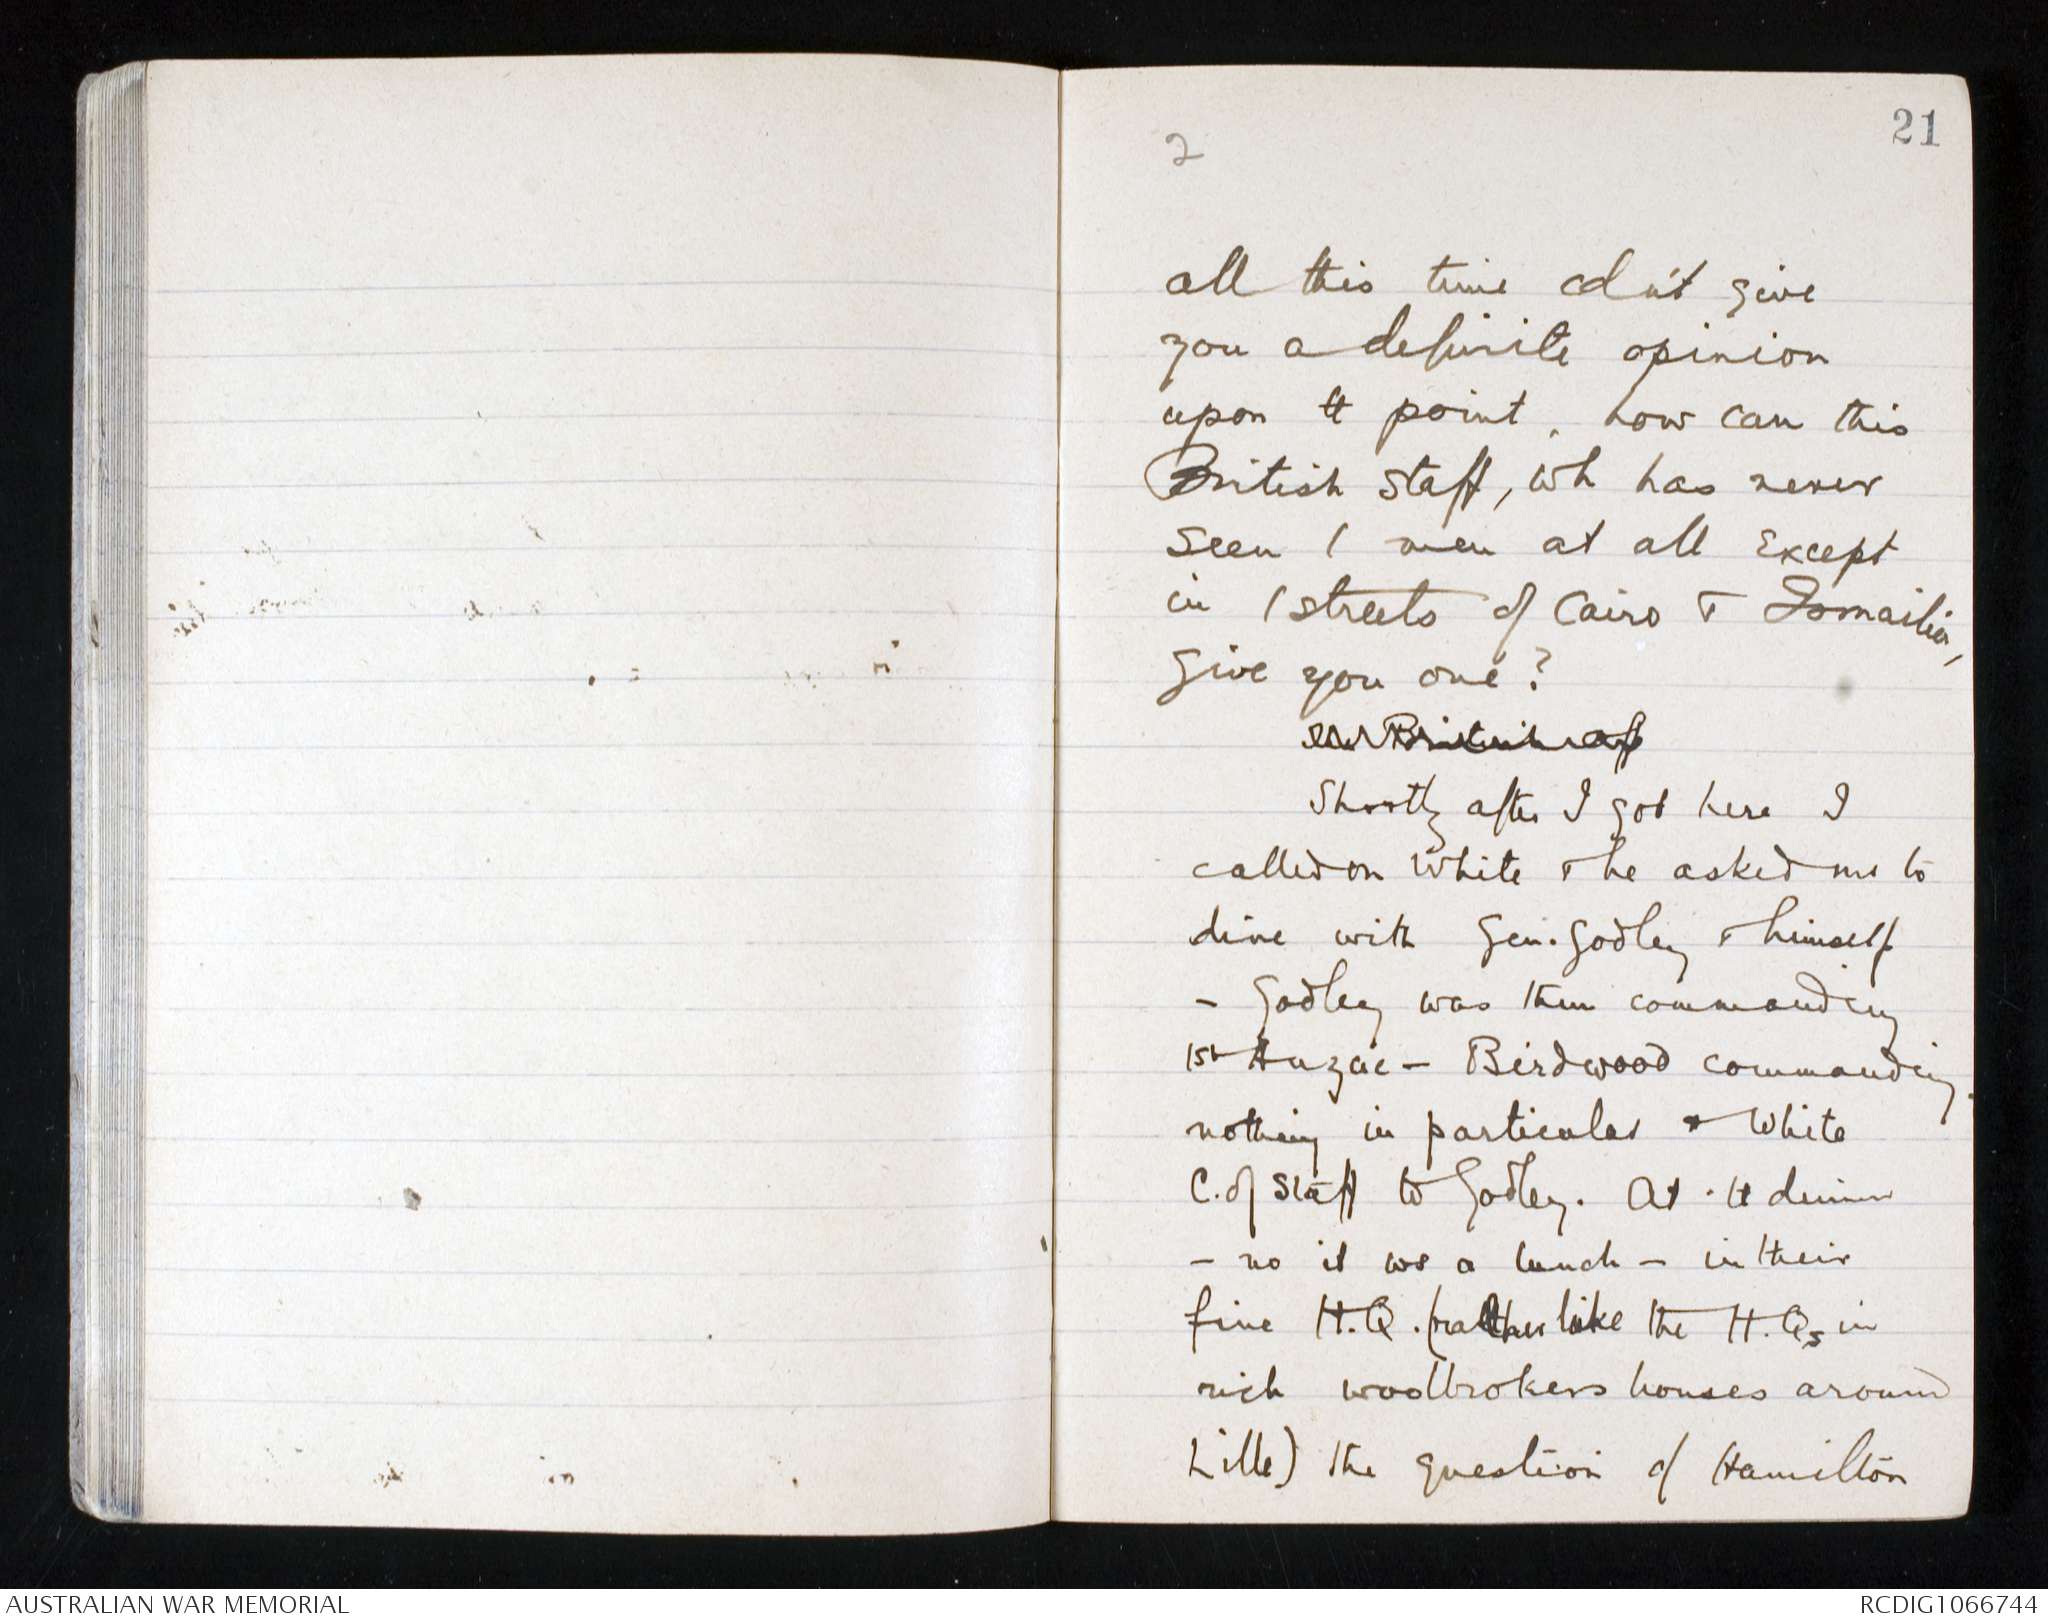 21
2
all this time cdn't give
you a definite opinion
upon tt point, how can this
British Staff, wh has never
seen / men at all except
in / streets of Cairo & Ismailia,
give you one?
Shortly after I got here I
called on White & he asked me to
dine with Gen. Godley & himself
- Godley was then commanding
1st Anzac - Birdwood commanding
nothing in particular & White
C. of Staff to Godley. At tt dinner
- no it ws a lunch - in their
fine H.Q. (rather like the H.Qs in
rich woolbrokers houses around
Lille) the question of Hamilton
AUSTRALIAN WAR MEMORIAL
RCDIG1066744